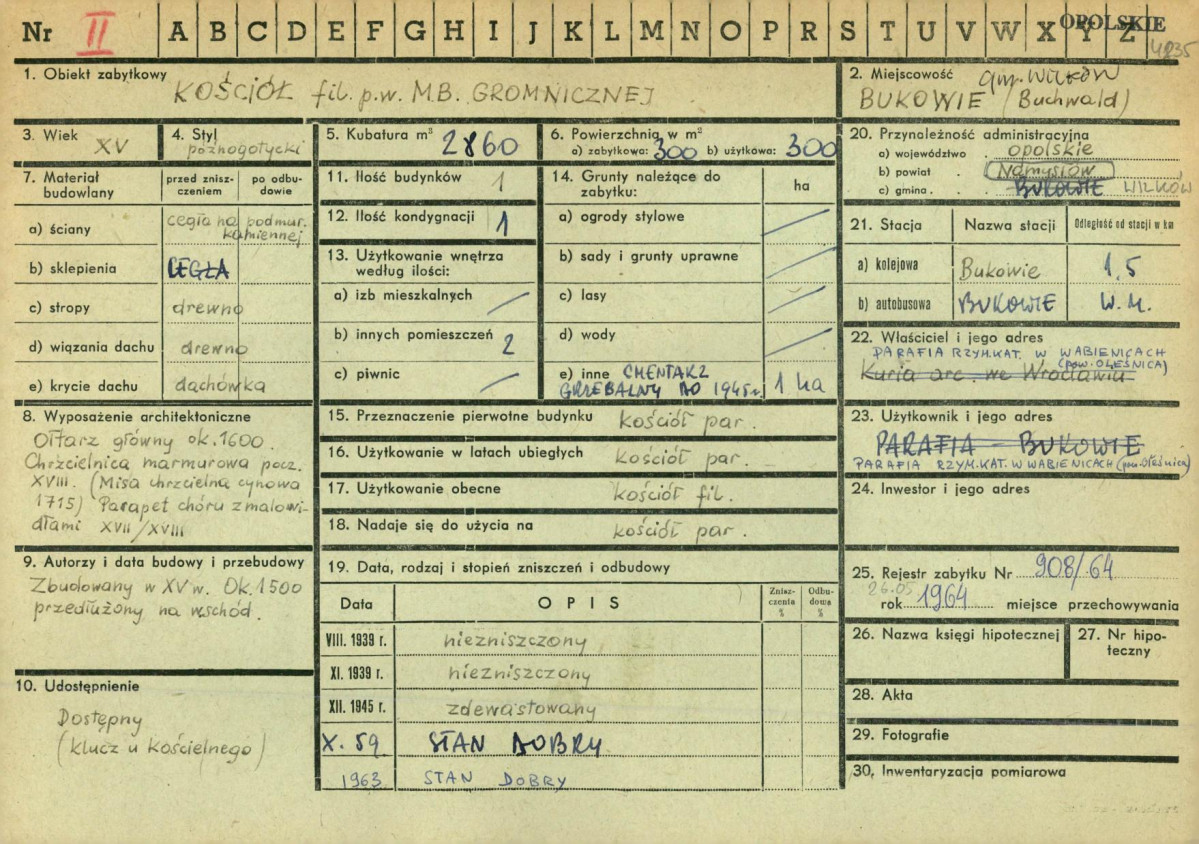 Nr II A B C D E F G H I J K L M N O P R S T U V W X Y Z OPOLSKIE
4235
1. Obiekt zabytkowy
KOŚCIÓŁ fil. p.w. M.B. GROMNICZNEJ
2. Miejscowość gm. WILKÓW
BUKOWIE (Buchwald)
3. Wiek
XV
4. Styl
późnogotycki
5. Kubatura m³ 2860
6. Powierzchnia w m²
a) zabytkowa: 300 b) użytkowa: 300
7. Materiał budowlany
przed zniszczeniem
po odbudowie
a) ściany
cegła na podmur.
kamiennej
b) sklepienia CEGŁA
c) stropy drewno
d) wiązania dachu drewno
e) krycie dachu dachówka
8. Wyposażenie architektoniczne
Ołtarz główny ok. 1600.
Chrzcielnica marmurowa pocz.
XVIII. (Misa chrzcielna cynowa
1715) Parapet chóru z malowi-
dłami XVII/XVIII
9. Autorzy i data budowy i przebudowy
Zbudowany w XV w. Ok. 1500
przedłużony na wschód.
10. Udostępnienie
Dostępny
(klucz u Kościelnego)
11. Ilość budynków 1
12. Ilość kondygnacji 1
13. Użytkowanie wnętrza
według ilości:
a) izb mieszkalnych /
b) innych pomieszczeń 2
c) piwnic /
14. Grunty należące do
zabytku:
ha
a) ogrody stylowe /
b) sady i grunty uprawne /
c) lasy /
d) wody /
e) inne CMENTARZ
GRZEBALNY DO 1945 r. 1 ha
15. Przeznaczenie pierwotne budynku kościół par.
16. Użytkowanie w latach ubiegłych kościół par.
17. Użytkowanie obecne kościół fil.
18. Nadaje się do użycia na kościół par.
19. Data, rodzaj i stopień zniszczeń i odbudowy
Data OPIS Zniszczenia % Odbudowa %
VIII. 1939 r. niezniszczony
XI. 1939 r. niezniszczony
XII. 1945 r. zdewastowany
X. 59 STAN DOBRY
1963 STAN DOBRY
20. Przynależność administracyjna
a) województwo opolskie
b) powiat Namysłów
c) gmina BUKOWIE WILKÓW
21. Stacja Nazwa stacji Odległość od stacji w km
a) kolejowa Bukowie 1,5
b) autobusowa BUKOWIE W. M.
22. Właściciel i jego adres
PARAFIA RZYM.KAT. W WABIENICACH
(POW. OLEŚNICA)
Kuria arc. we Wrocławiu
23. Użytkownik i jego adres
PARAFIA - BUKOWIE
PARAFIA RZYM.KAT. W WABIENICACH (pow. Oleśnica)
24. Inwestor i jego adres
25. Rejestr zabytku Nr 908/64
26.05
rok 1964 miejsce przechowywania
26. Nazwa księgi hipotecznej
27. Nr hipoteczny
28. Akta
29. Fotografie
30. Inwentaryzacja pomiarowa